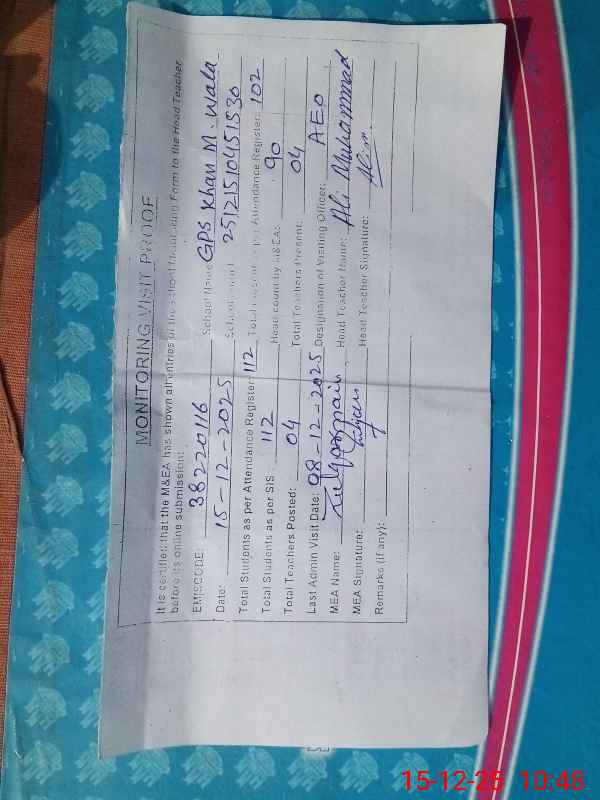 MONITORING VISIT PROOF
It is certified that the M&EA has shown all entries of the school monitoring Form to the Head Teacher
before its online submission:
EMISCODE: 38220116 School Name GPS Khan M. Wala
Date: 15-12-2025 School 25121510451530
Total Students as per Attendance Register: 112 Total Present as per Attendance Register: 102
Total Students as per SIS: 112 Head count by M&EA: 90
Total Teachers Posted: 04 Total Teachers Present: 04
Last Admin Visit Date: 08-12-2025 Designation of Visiting Officer: AEO
MEA Name: Head Teacher Name: Ali Muhammad
MEA Signature: Head Teacher Signature:
Remarks (if any):
15-12-25 10:48